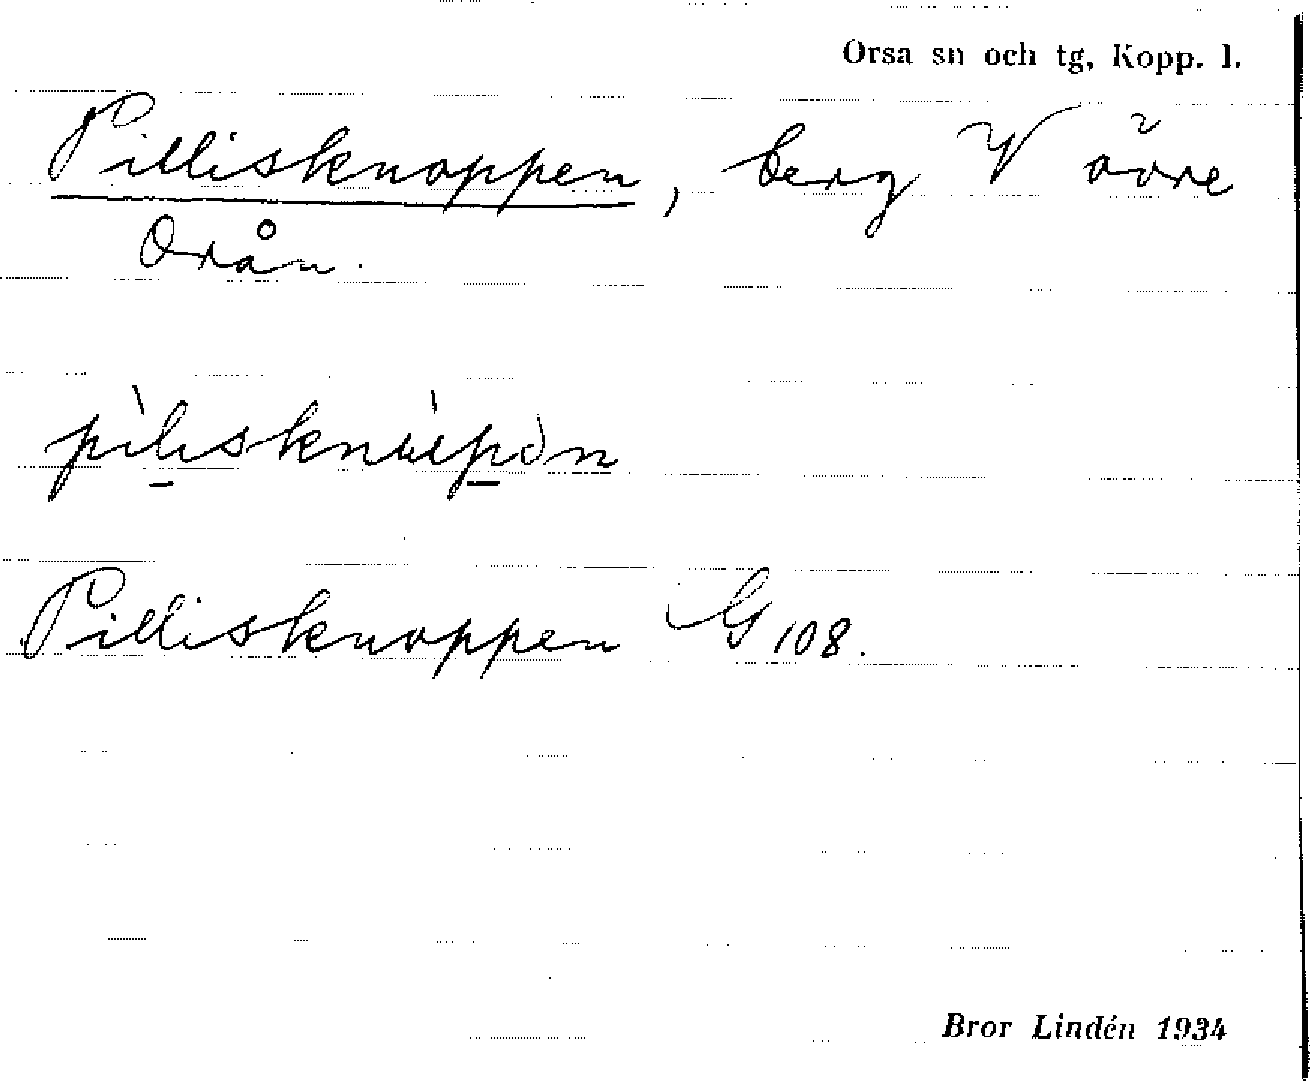 Orsa sn och tg, Kopp. l.
Pillisknoppen, berg V övre
Orån.
Pillisknoppen G 108.
Bror Lindén 1934